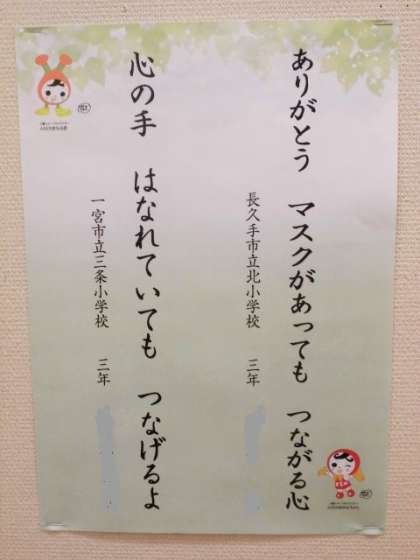 ありがとう　マスクがあっても　つながる心
長久手市立北小学校　三年
心の手　はなれていても　つなげるよ
一宮市立三条小学校　三年